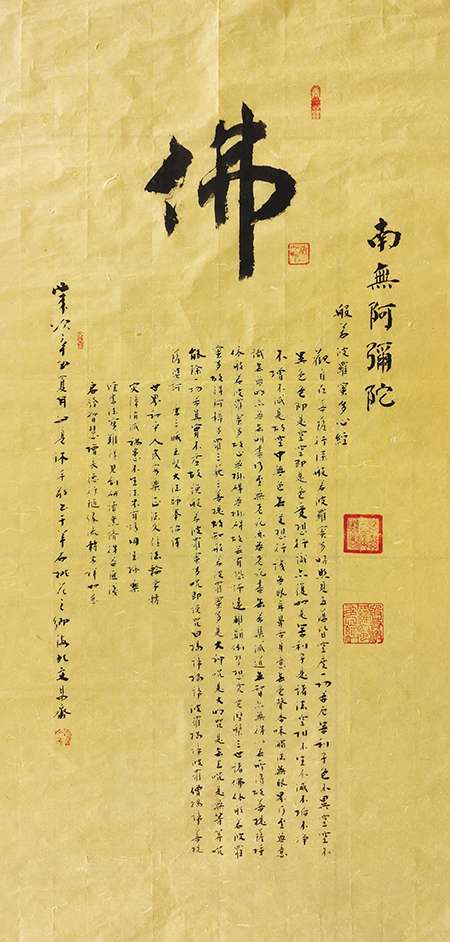 佛
南無阿彌陀
般若波羅蜜多心經
觀自在菩薩行深般若波羅蜜多時照見五蘊皆空度一切苦厄舍利子色不異空空不
異色色即是空空即是色受想行識亦復如是舍利子是諸法空相不生不滅不垢不淨
不增不減是故空中無色無受想行識無眼耳鼻舌身意無色聲香味觸法無眼界乃至無意
識無無明亦無無明盡乃至無老死亦無老死盡無苦集滅道無智亦無得以無所得故菩提薩埵
依般若波羅蜜多故心無掛礙無掛礙故無有恐怖遠離顛倒夢想究竟涅槃三世諸佛依般若波羅
蜜多故得阿耨多羅三藐三菩提故知般若波羅蜜多是大神咒是大明咒是無上咒是無等等咒
能除一切苦真實不虛故說般若波羅蜜多咒即說咒曰揭諦揭諦波羅揭諦波羅僧揭諦菩提
薩婆訶
世界和平人民安樂正法久住法輪常轉
災障消滅
智慧增長
歲次辛丑夏月